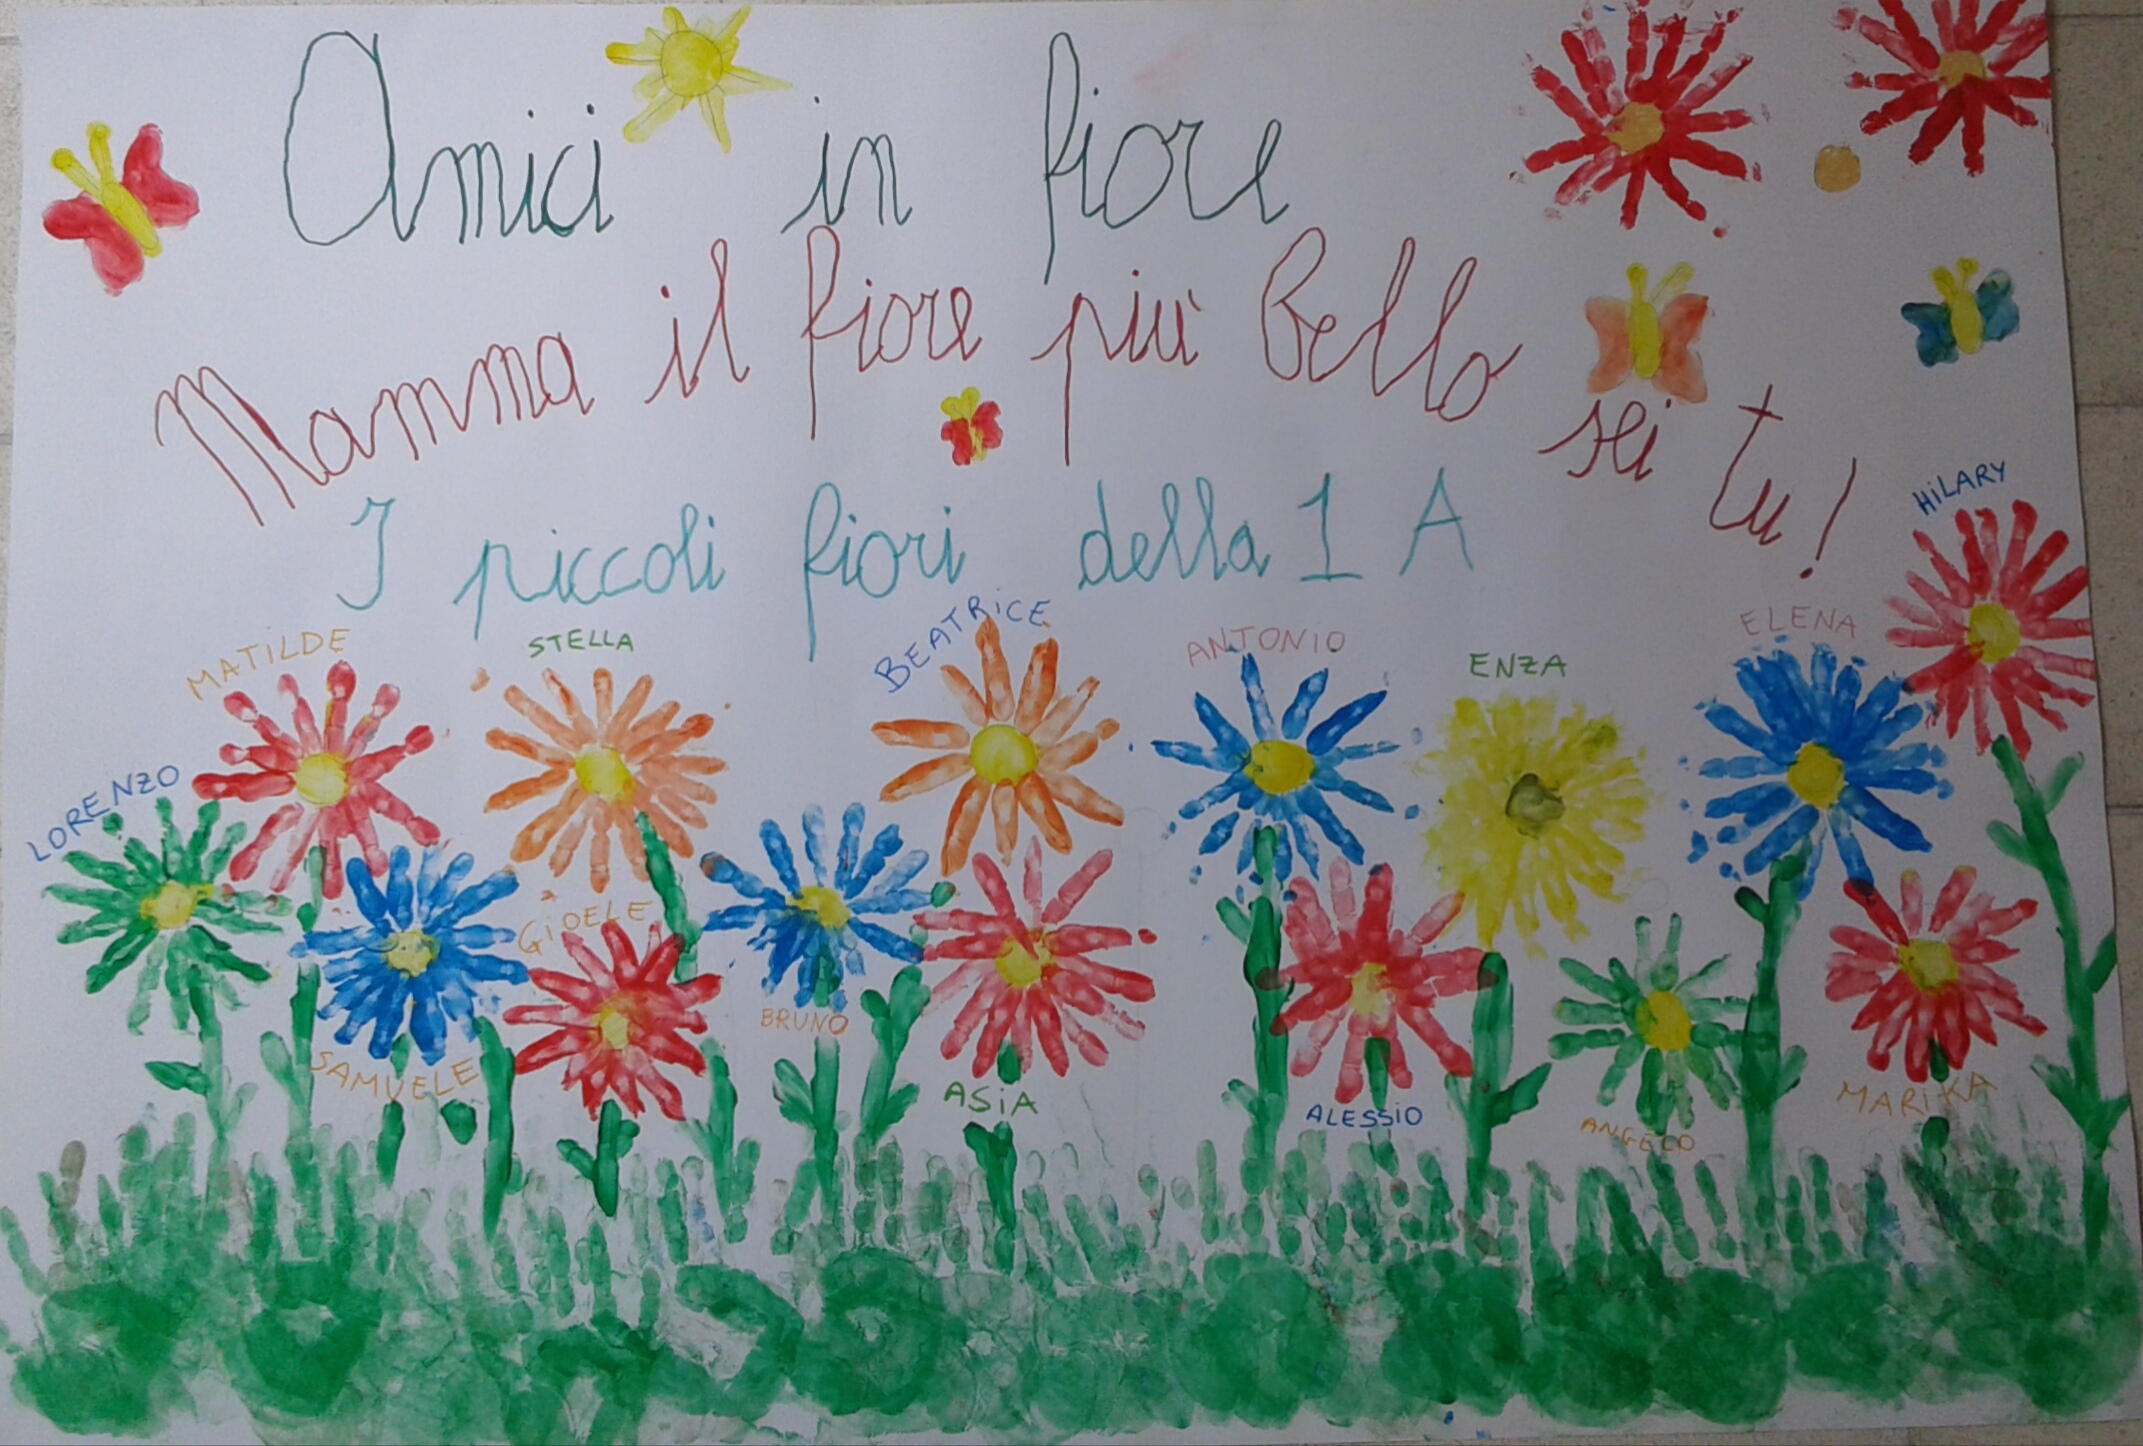 Amici in fiore
Mamma il fiore più bello sei tu!
I piccoli fiori della 1 A
HiLARY
MATILDE
STELLA
BEATRiCE
ANTONIO
ENZA
ELENA
LORENZO
GiOELE
SAMUELE
BRUNO
ASiA
ALESSiO
ANGELO
MARiKA